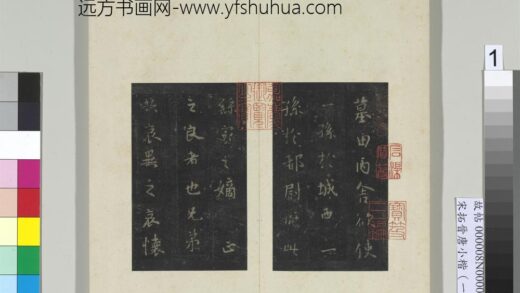 远方书画网-www.yfshuhua.com
墓田丙舍欲使
一孫於城西一
孫於都尉府此
繇家之嫡正
之良者也兄弟
共哀異之哀懷
1
故帖 000008N0000
宋拓晉唐小楷（一